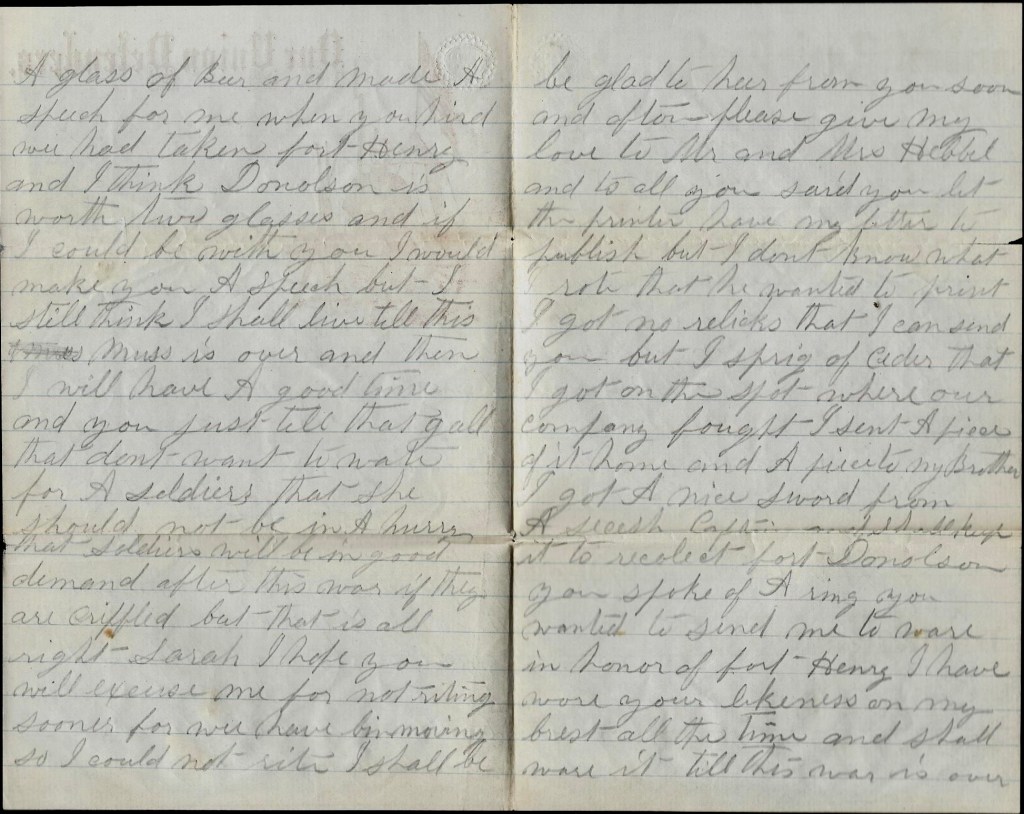 A glass of beer and made A
speech for me when you hird
wee had taken fort Henry
and I think Donolson is
worth two glasses and if
I could be with you I would
make you A speech but I
still think I shall live till this
Muss is over and then
I will have A good time
and you just tell that gall
that dont want to wate
for A soldiers that she
should not be in A hurry
that soldiers will be in good
demand after this war if they
are criffled but that is all
right Sarah I hope you
will excuse me for not riting
sooner for wee have bin moving
so I could not rite I shall be
be glad to heer from you soon
and often please give my
love to Mr and Mrs Hebbel
and to all you said you let
the printer have my letter to
publish but I dont know what
I rote that he wanted to print
I got no relicks that I can send
you but I sprig of ceder that
I got on the spot where our
company fought I sent A piece
of it home and A piece to my Brother
I got A nice sword from
A secesh Capt and shall keep
it to recolect fort Donolson
you spoke of A ring you
wanted to send me to ware
in honor of fort Henry I have
wore your likeness on my
brest all the time and shall
ware it till this war is over
Our Union Defenders